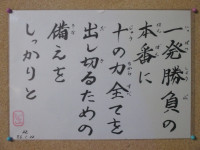 一発勝負の
本番に
十の力全てを
出し切るための
備えを
しっかりと